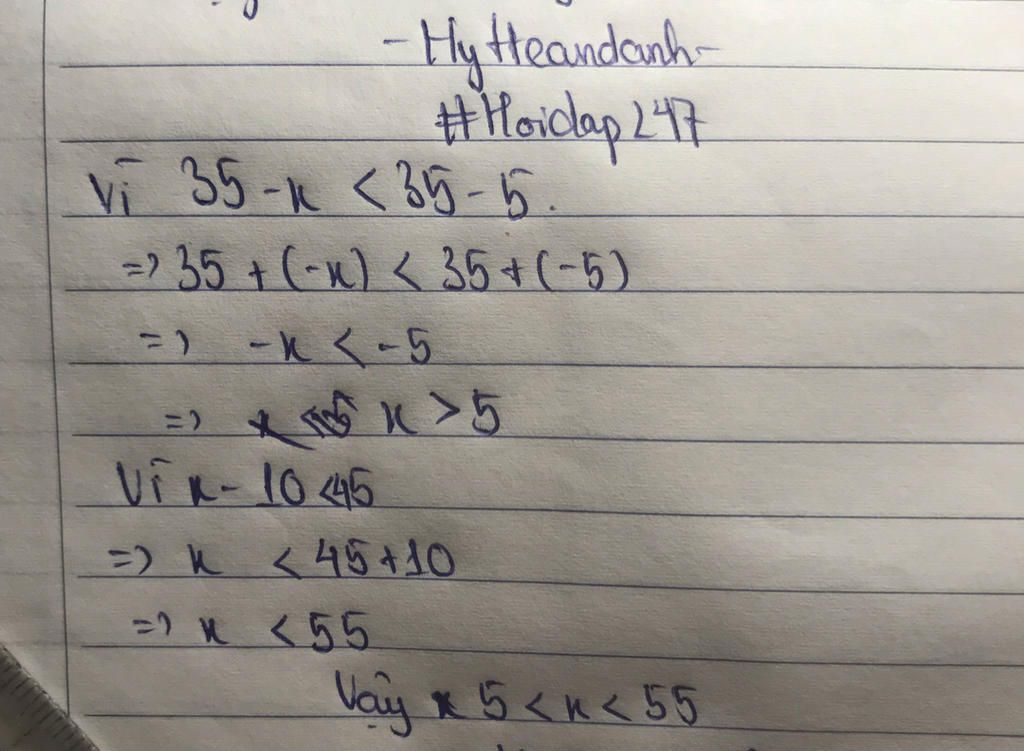 -HyHeandanh-
#Hoidap247
Vì 35 - x < 35 - 5.
=> 35 + (-x) < 35 + (-5)
=> -x < -5
=> x > 5
Vì x - 10 < 45
=> x < 45 + 10
=> x < 55
Vậy 5 < x < 55